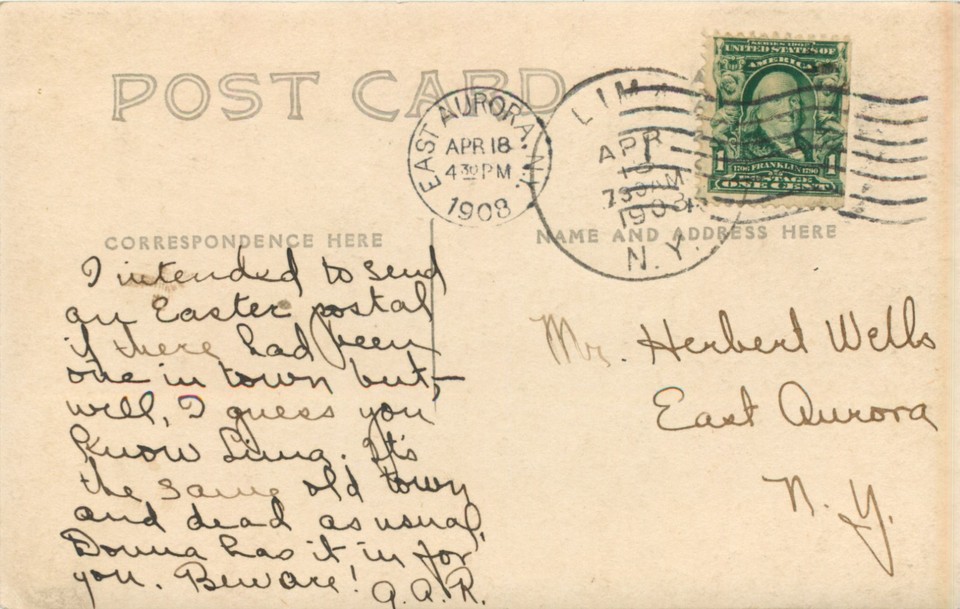 POST CARD
EAST AURORA, N.Y.
APR 18
4 30 PM
1908
LIMA
APR
7 30 AM
1908
N.Y.
SERIES 1902
UNITED STATES OF
AMERICA
1 1
1706 FRANKLIN 1790
POSTAGE
ONE CENT
CORRESPONDENCE HERE
NAME AND ADDRESS HERE
I intended to send
an Easter postal
if there had been
one in town but—
well, I guess you
know Lima. It's
the same old town
and dead as usual.
Donna has it in for
you. Beware! A.A.R.
Mr. Herbert Wells
East Aurora
N. Y.